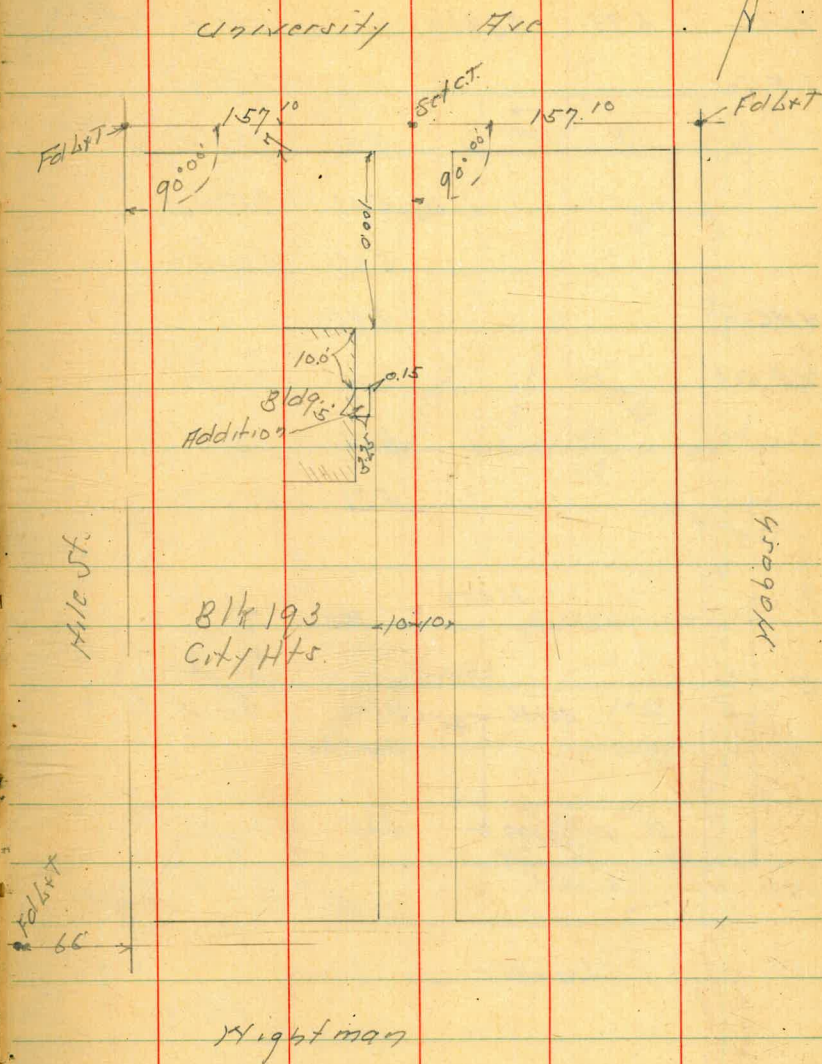 University Ave
N
Fd L&T
157.10
Set C.T.
157.10
Fd L&T
90°00'
90°00'
100.0
10.0
0.15
Bldg.
5'
Addition
Nile St.
Blk 193
City Hts.
10 10
Fd L&T
66
Wightman